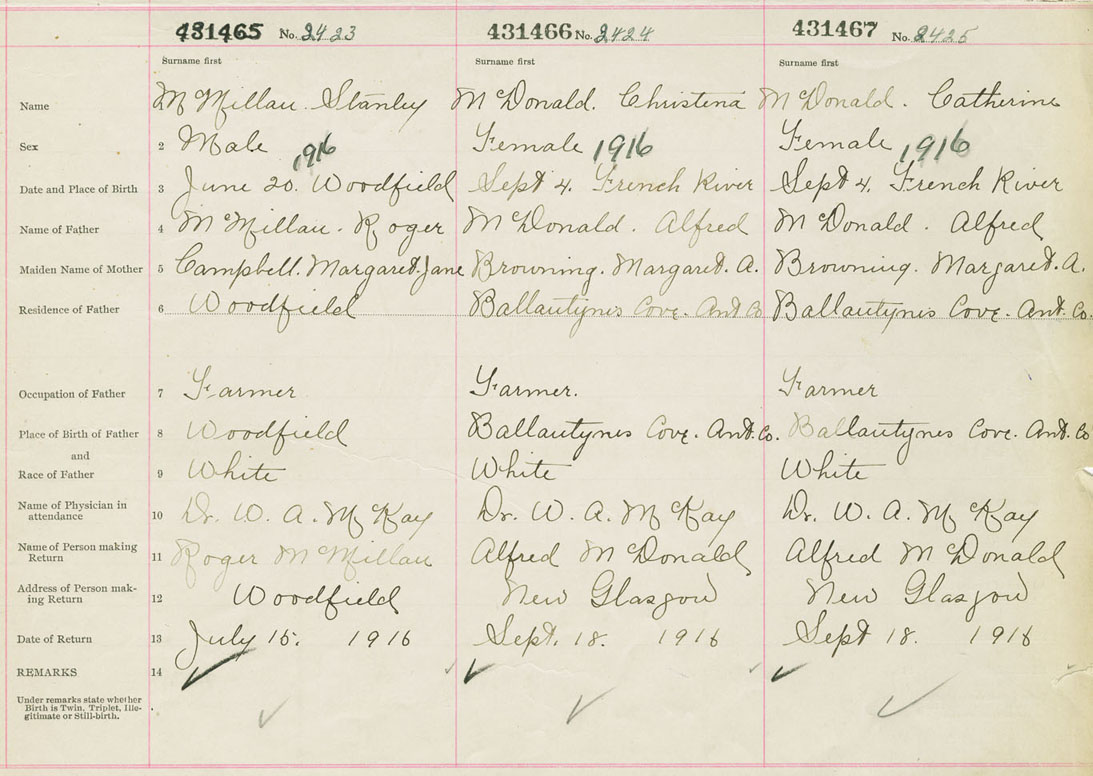 431465 No. 2423 431466 No. 2424 431467 No. 2425
Surname first Surname first Surname first
Name McMillan. Stanley McDonald. Christena McDonald. Catherine
Sex 2 Male Female Female
1916 1916 1916
Date and Place of Birth 3 June 20. Woodfield Sept 4. French River Sept 4. French River
Name of Father 4 McMillan. Roger McDonald. Alfred McDonald. Alfred
Maiden Name of Mother 5 Campbell. Margaret. Jane Browning. Margaret. A. Browning. Margaret. A.
Residence of Father 6 Woodfield Ballantynes Cove. Ant Co Ballantynes Cove. Ant. Co.
Occupation of Father 7 Farmer Farmer. Farmer
Place of Birth of Father 8 Woodfield Ballantynes Cove. Ant. Co. Ballantynes Cove. Ant. Co
and
Race of Father 9 White White White
Name of Physician in
attendance 10 Dr. W. A. McKay Dr. W. A. McKay Dr. W. A. McKay
Name of Person making
Return 11 Roger McMillan Alfred McDonald Alfred McDonald
Address of Person mak-
ing Return 12 Woodfield New Glasgow New Glasgow
Date of Return 13 July 15. 1916 Sept. 18. 1916 Sept 18. 1916
REMARKS 14
Under remarks state whether
Birth is Twin. Triplet, Ille-
gitimate or Still-birth.